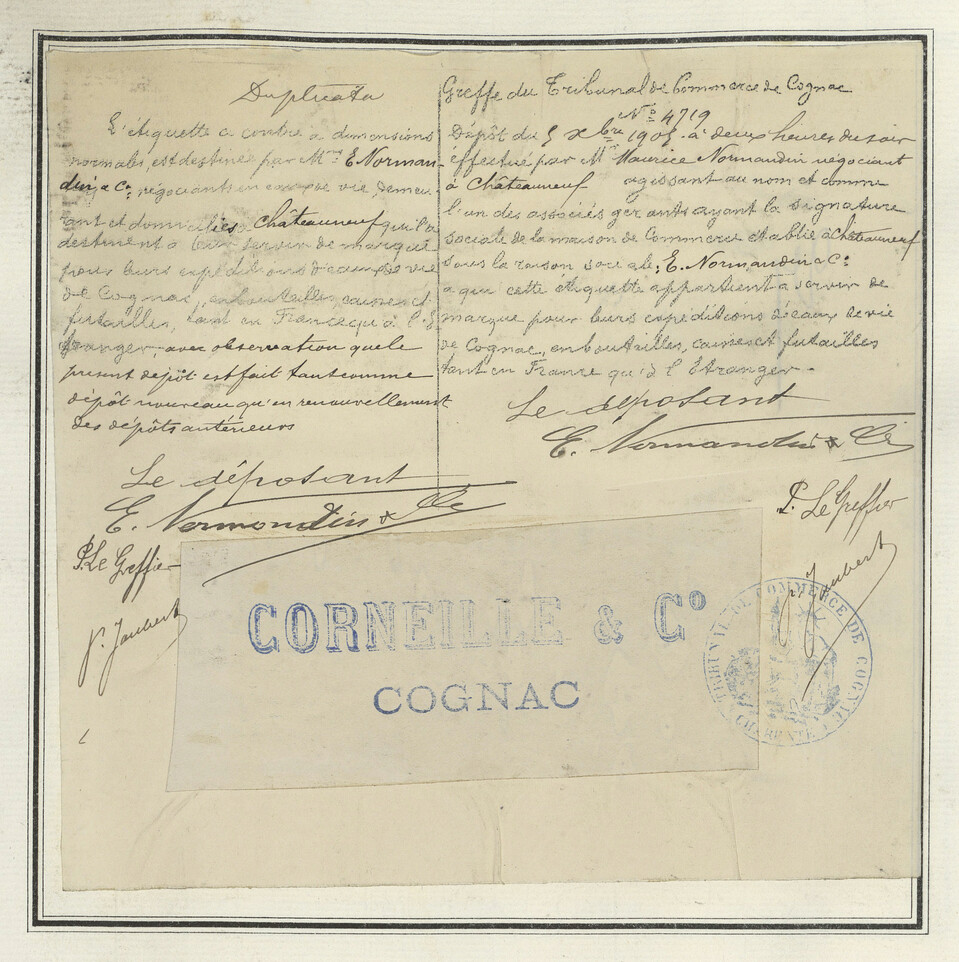 Duplicata
L'étiquette ci contre à dimensions
normales, est destinée par M.rs E. Norman-
din & Co, négociants en eaux de vie, demeu-
rant et domiciliés à Châteauneuf qui la
destinent à leur servir de marque
pour leurs expéditions d'eaux de vie
de Cognac, en bouteilles, caisses et
futailles, tant en France qu'à l'É-
tranger, avec observation que le
présent dépôt est fait tant comme
dépôt nouveau qu'en renouvellement
des dépôts antérieurs
Le déposant
E. Normandin & Cie
P. Le Greffier
P. Jaubert
Greffe du Tribunal de Commerce de Cognac
No 4719
Dépôt du 5 Xbre 1905 à deux heures du soir
effectué par Mr Maurice Normandin négociant
à Châteauneuf agissant au nom et comme
l'un des associés gérants ayant la signature
sociale de la maison de Commerce établie à Châteauneuf
sous la raison sociale: E. Normandin & Co
à qui cette étiquette appartient à servir de
marque pour leurs expéditions d'eaux de vie
de Cognac, en bouteilles, caisses et futailles
tant en France qu'à l'Étranger.
Le déposant
E. Normandin & Cie
P. Le Greffier
P. Jaubert
CORNEILLE & Co
COGNAC
TRIBUNAL DE COMMERCE DE COGNAC
CHARENTE